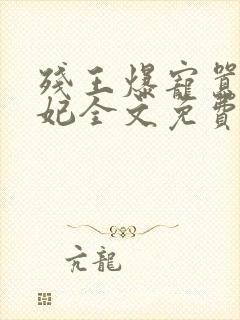 残王爆寵嚣
妃全文免費
亢龍